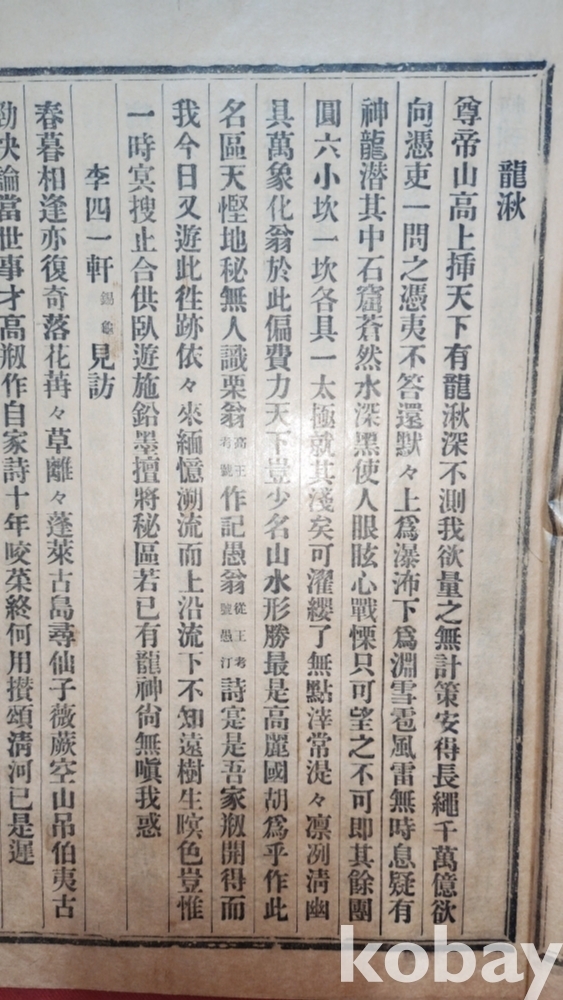 龍湫
尊帝山高上揷天下有龍湫深不測我欲量之無計策安得長繩千萬億欲
向憑吏一問之憑夷不答還默々上爲瀑沛下爲淵雪雹風雷無時息疑有
神龍潛其中石窟蒼然水深黑使人眼眩心戰慄只可望之不可卽其餘團
圓六小坎一坎各具一太極就其淺矣可濯纓了無點滓常湜々凛冽淸幽
具萬象化翁於此偏費力天下豈少名山水形勝最是高麗國胡爲乎作此
名區天慳地秘無人識栗翁高王考號作記愚翁從王考號愚汀詩寔是吾家刱開得而
我今日又遊此徃跡依々來緬憶溯流而上沿流下不知遠樹生暝色豈惟
一時冥搜止合供臥遊施鉛墨擅將秘區若已有龍神尙無嗔我惑
李四一軒錫 見訪
春暮相逢亦復奇落花苒々草離々蓬萊古島尋仙子薇蕨空山吊伯夷古
勁快論當世事才高刱作自家詩十年咬菜終何用攅頌淸河已是遲
kobay